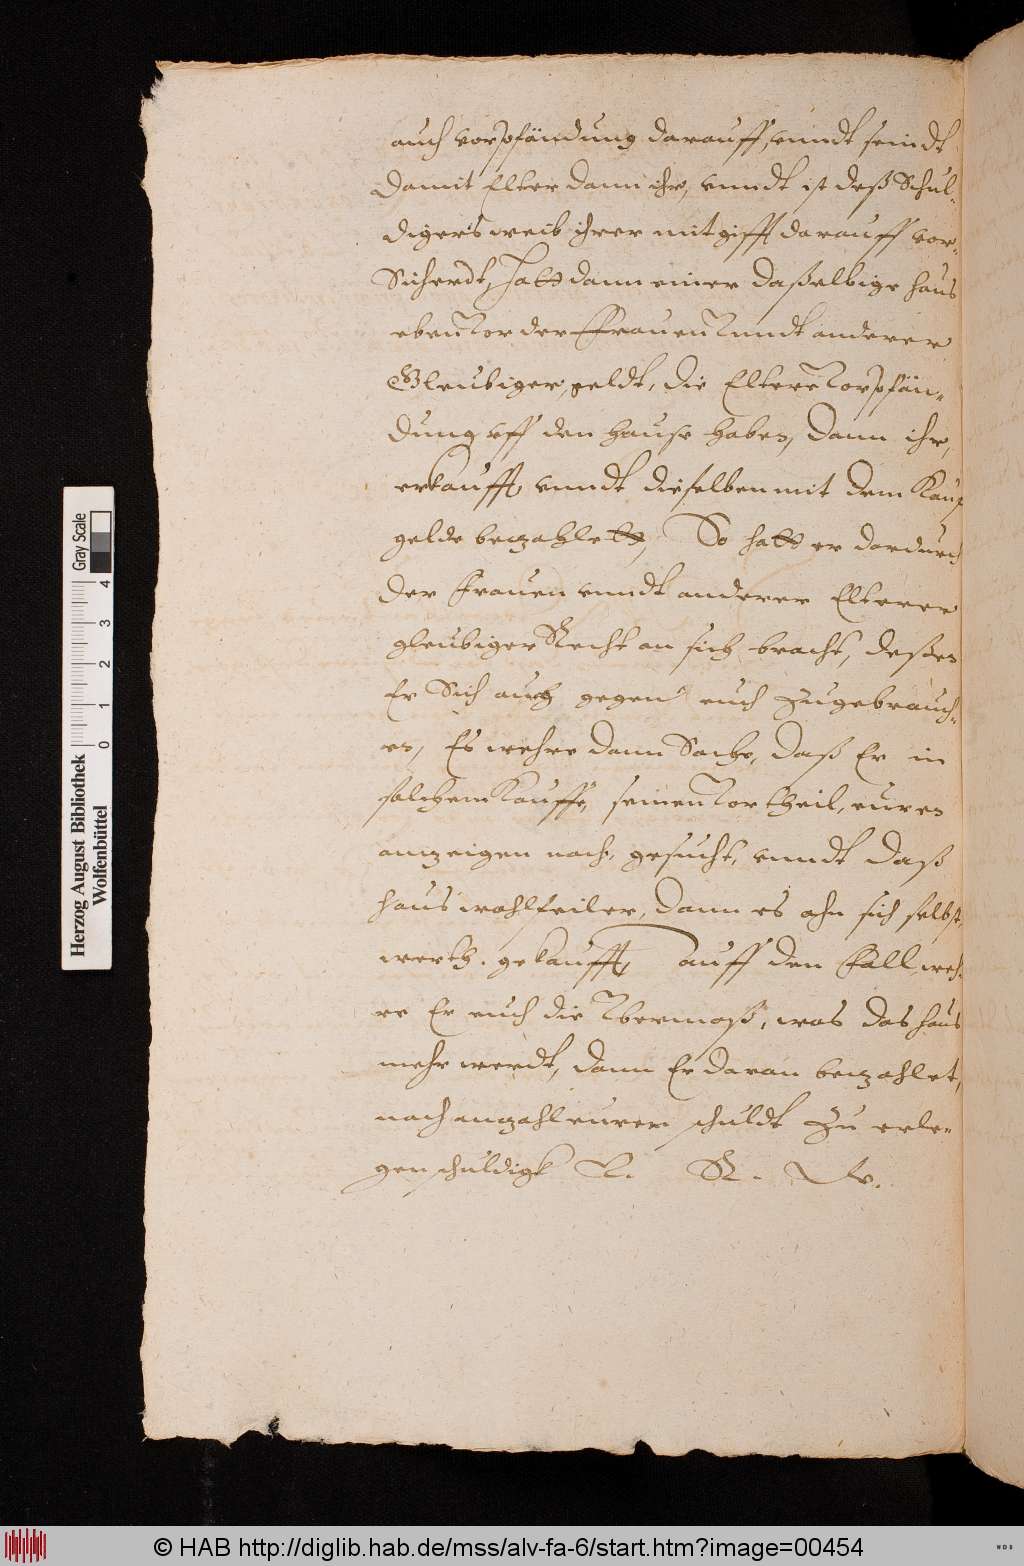 auch vorpfändung darauff, unndt seindt
damit Elter dann ihr, unndt ist deß Schul-
digers weib ihrer mitgifft darauff vor-
Sicherdt, Hatt dann einer daßelbige haus
eben Vor der Frauen Unndt anderer
Gleubiger, geldt, die Eltere Vorpfän-
dung uff den hause haben, dann ihr,
erkaufft, unndt dieselben mit dem Kauf
gelde bezahlett, So hatt er dardurch
der frauen unndt anderer Elterer
gleubiger Recht an sich bracht, deßen
Er Sich auch gegen euch zugebrauch-
en, Es wehre dann Sache, daß Er in
solchem Kauffe, seinen Vortheil, euren
anzeigen nach, gesucht, unndt daß
haus wohlfeiler, dann es ahn sich selbst,
werth. gekaufft, auff den Fall weh-
re Er euch die Ubermaß, was das haus
mehr werdt, dann Er daran bezahlet,
nach anzahl eurer schuldt zu erle-
gen schuldigk V. R. W.
Herzog August Bibliothek
Wolfenbüttel
0 1 2 3 4
Gray Scale
© HAB http://diglib.hab.de/mss/alv-fa-6/start.htm?image=00454
WDB